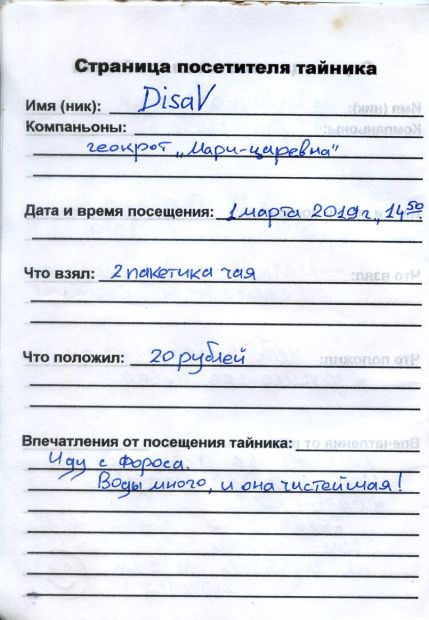 Страница посетителя тайника
Имя (ник): DisaV
Компаньоны:
геокрот „Мари-царевна"
Дата и время посещения: 1 марта 2019г, 14 50
Что взял: 2 пакетика чая
Что положил: 20 рублей
Впечатления от посещения тайника:
Иду с Фороса.
Воды много, и она чистейшая!